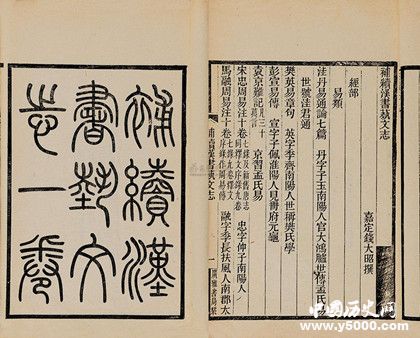 補續漢
書藝文
志一卷
補續漢書蓺文志
嘉定錢大昭撰
經部
易類
洼丹易通論七篇 丹字子玉南陽人官大鴻臚世傳孟氏易
世號洼君通
樊英易章句 英字季齊南陽人世稱樊氏學
彭宣易傳 宣字子佩淮陽人見冊府元龜
袁京難記 京習孟氏易
宋忠周易注十卷 忠字仲子南陽人
馬融周易注十卷 融字季長扶風人南郡太
補續漢書蓺文志 一 廣雅書局栞
中国历史网
www.y5000.com